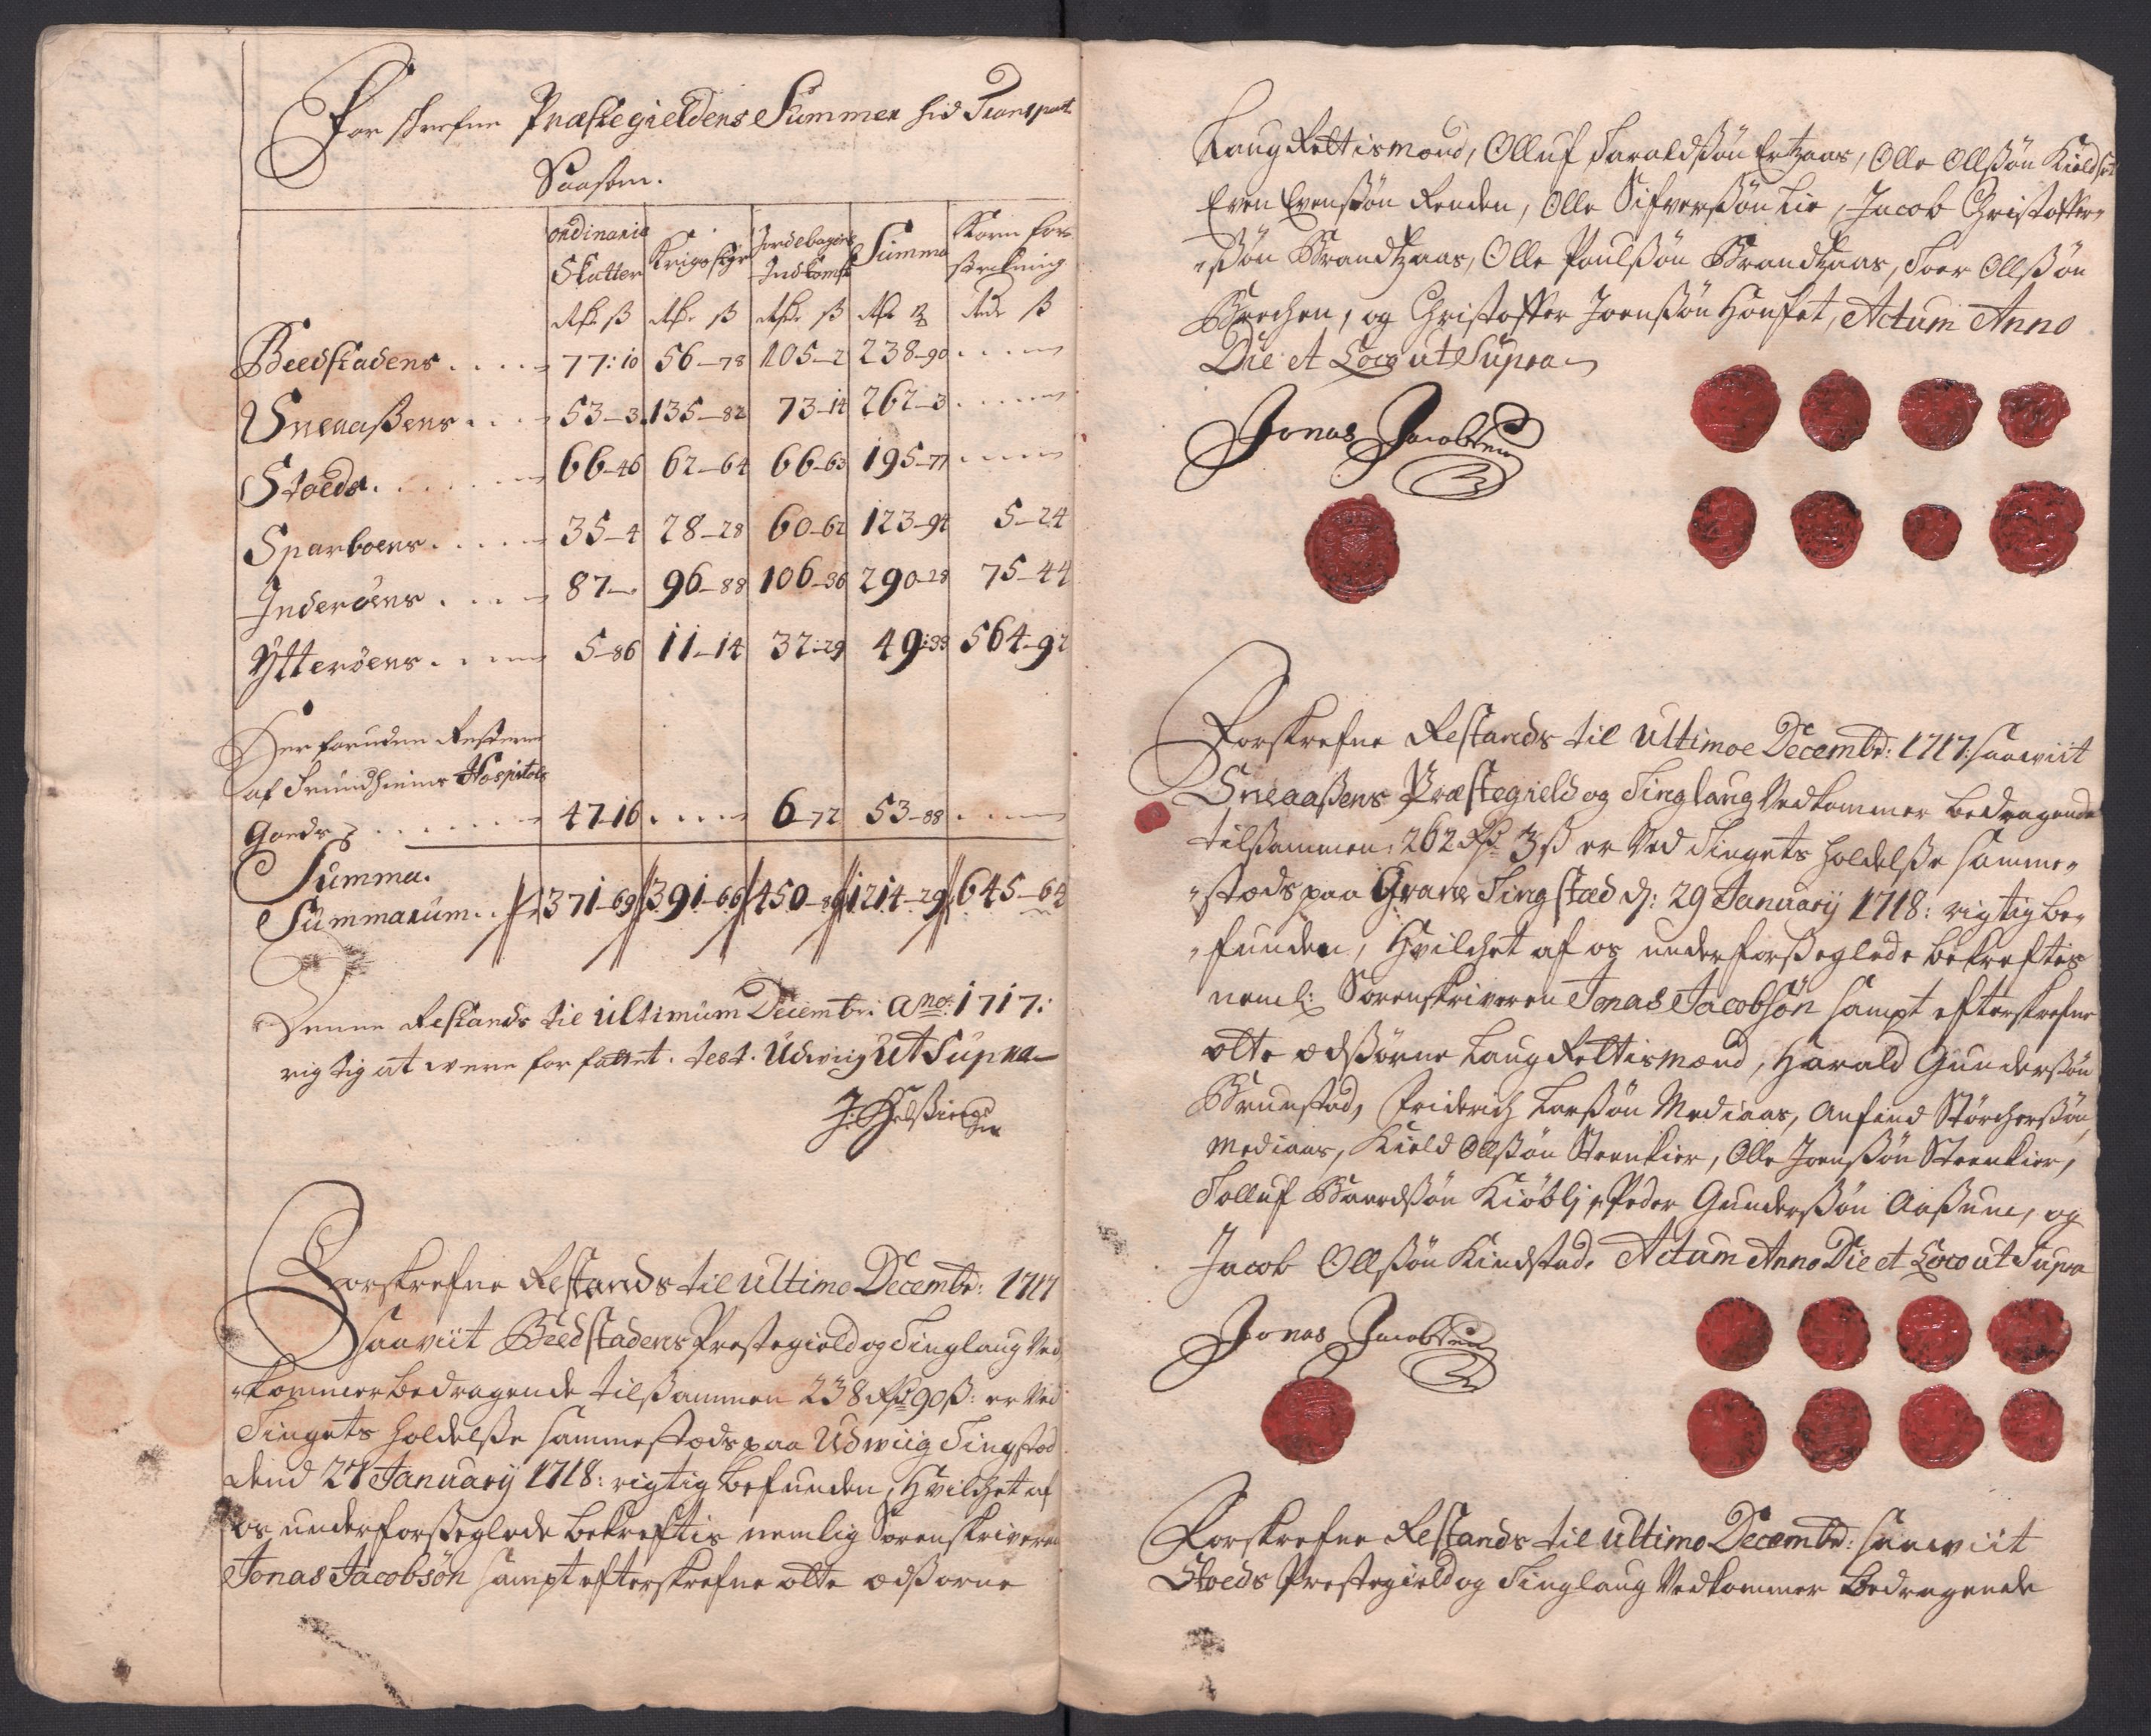 For skrefne Præstegieldens Summer hid Transport
Saasom.
ordinarie Skatter | Krigsstyr | Jordebogens Indkomst | Summa | Korn for strekning
Rdr ß | Rdr ß | Rdr ß | Rdr ß | Rdr ß
Beedstadens . . . . 77:10 | 56–78 | 105–2 | 238–90
Sneaaßens . . . 53–3 | 135–82 | 73–14 | 262–3
Stoeds . . . . . 66–46 | 62–64 | 66–63 | 195–77
Sparboens . . . . 35–4 | 28–28 | 60–62 | 123–94 | 5–24
Inderöens . . . 87– | 96–88 | 106–36 | 290–28 | 75–44
Ytteröens . . . 5–86 | 11–14 | 32–29 | 49:33 | 564–92
Her foruden Resterer
af Trundhiems Hospitals
Goeds . . . . . 47–16 . . . . 6–72 | 53–88
Summa
Summarum . . 371–69 | 391–66 | 450–86 | 1214–29 | 645–64
Denne Restands til ultimum Decembr: Ano: 1717:
rigtig at were forfattet. test. Udwiig Ut Supra
Forskrefne Restands til ultimo Decembr: 1717
saaviit Beedstadens Prestegield og Tinglaug Ved
kommer bedragende tilßammen 238 Rdr 90 ß: er Ved
Tingets holdelße sammestæds paa Udwiig Tingstæd
dend 27 January 1718: rigtig befunden, Hvilchet af
os underforßeglede bekreftis nemlig Sorenskriveren
Jonas Jacobsön sampt efterskrefne otte ædßorne
Laug Rettismænd, Olluf Haraldßön Ertzaas, Olle Ollßön Kield
Even Evenßön Renden, Olle Sifverßön Lie, Jacob Christoffer„
„ßön Brandtzaas, Olle Poulßön Brandtzaas, Toer Ollßön
og Christoffer Joenßön Actum Anno
Die et Loco ut Supra
Jonas Jacobsen
Forskrefne Restands til ultimoe Decembr: 1717: saawiit
Sneaaßens Præstegield og Tinglaug Vedkommer bedragende
tilßammen: 262 Rdr 3 ß er Ved Tingets holdelße samme„
„stæds paa Grane Tingstæd d: 29 January 1718: rigtig be„
„funden, Hvilchet af os underforßeglede bekreftes
neml: Sorenskriveren Jonas Jacobsön sampt efterskrefne
otte ædßorne Laug Rettismænd, Harald Gunderßön
Brunstad, Friderich Larßön Mediaas, Anfind Störcherßön
Mediaas, Kield Ollßön Steenkier, Olle Joenßön Steenkier,
Tolluf Baardßön Kiöblj, Peder Gunderßön Aaßum, og
Jacob Ollßön Kindstad. Actum Anno Die et Loco ut Supra
Jonas Jacobsen
Forskrefne Restands til ultimo Decembr: saawiit
Stoeds Prestegield og Tinglaug Vedkommer bedragende